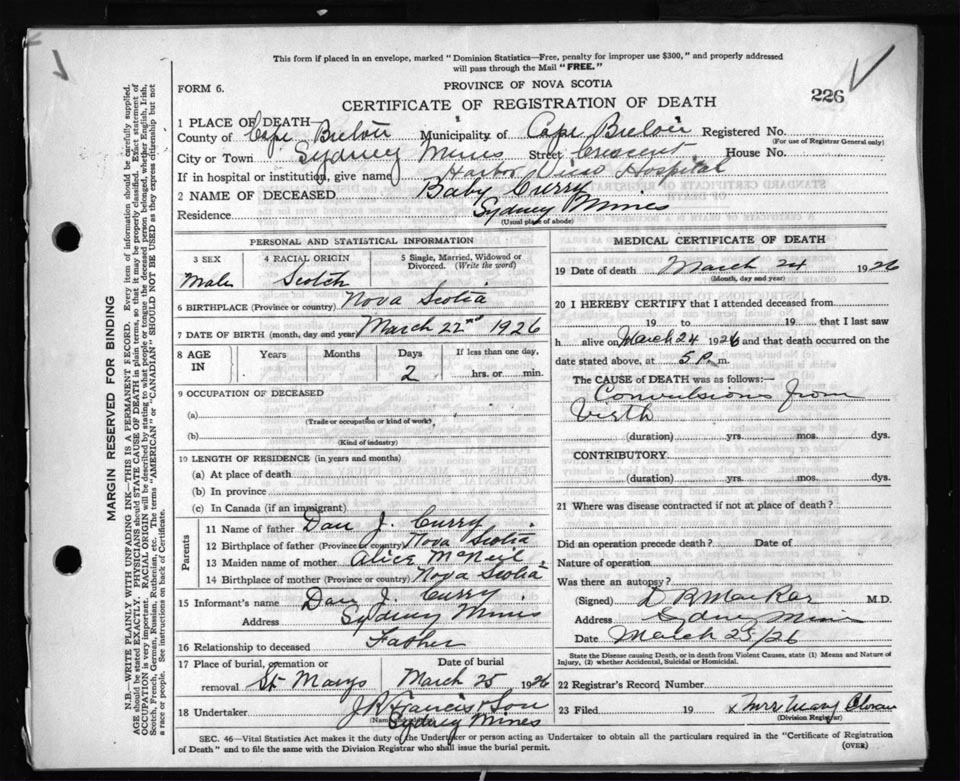 This form if placed in an envelope, marked "Dominion Statistics—Free, penalty for improper use $300," and properly addressed
will pass through the Mail "FREE."
PROVINCE OF NOVA SCOTIA
FORM 6.
226
CERTIFICATE OF REGISTRATION OF DEATH
1 PLACE OF DEATH
County of Cape Breton Municipality of Cape Breton Registered No.
(For use of Registrar General only)
City or Town Sydney Mines Street Crescent House No.
If in hospital or institution, give name Harbor View Hospital
2 NAME OF DECEASED Baby Curry
Residence Sydney Mines
(Usual place of abode)
PERSONAL AND STATISTICAL INFORMATION
3 SEX 4 RACIAL ORIGIN 5 Single, Married, Widowed or
Divorced. (Write the word)
Male Scotch
6 BIRTHPLACE (Province or country) Nova Scotia
7 DATE OF BIRTH (month, day and year) March 22nd 1926
8 AGE IN Years Months Days If less than one day,
2 hrs. or min.
9 OCCUPATION OF DECEASED
(a)
(Trade or occupation or kind of work)
(b)
(Kind of industry)
10 LENGTH OF RESIDENCE (in years and months)
(a) At place of death
(b) In province
(c) In Canada (if an immigrant)
Parents
11 Name of father Dan J. Curry
12 Birthplace of father (Province or country) Nova Scotia
13 Maiden name of mother Alice McNeil
14 Birthplace of mother (Province or country) Nova Scotia
15 Informant's name Dan J. Curry
Address Sydney Mines
16 Relationship to deceased Father
17 Place of burial, cremation or Date of burial
removal St Marys March 25 1926
18 Undertaker J R Francis & Son
(Name
Sydney Mines
MEDICAL CERTIFICATE OF DEATH
19 Date of death March 24 1926
(Month, day and year)
20 I HEREBY CERTIFY that I attended deceased from
19 to 19 that I last saw
h alive on March 24 1926 and that death occurred on the
date stated above, at 5 P. m.
The CAUSE of DEATH was as follows:—
Convulsions from
birth
(duration) yrs. mos. dys.
CONTRIBUTORY
(duration) yrs. mos. dys.
21 Where was disease contracted if not at place of death?
Did an operation precede death? Date of
Nature of operation
Was there an autopsy?
(Signed) M.D.
Address Sydney Mines
Date March 25/26
State the Disease causing Death, or in death from Violent Causes, state (1) Means and Nature of
Injury, (2) whether Accidental, Suicidal or Homicidal.
22 Registrar's Record Number
23 Filed 19 x Mrs Mary
(Division Registrar)
SEC. 46—Vital Statistics Act makes it the duty of the Undertaker or person acting as Undertaker to obtain all the particulars required in the "Certificate of Registration
of Death" and to file the same with the Division Registrar who shall issue the burial permit.
(OVER)
MARGIN RESERVED FOR BINDING
N.B.—WRITE PLAINLY WITH UNFADING INK—THIS IS A PERMANENT RECORD. Every item of information should be carefully supplied.
AGE should be stated EXACTLY. PHYSICIANS should STATE CAUSE OF DEATH in plain terms, so that it may be properly classified. Exact statement of
OCCUPATION is very important. RACIAL ORIGIN will be described by stating to what people or tongue the deceased person belonged, whether English, Irish,
Scotch, French, German, Russian, Ruthenian, etc. The terms "AMERICAN" or "CANADIAN" SHOULD NOT BE USED as they express citizenship but not
a race or people. See instructions on back of Certificate.